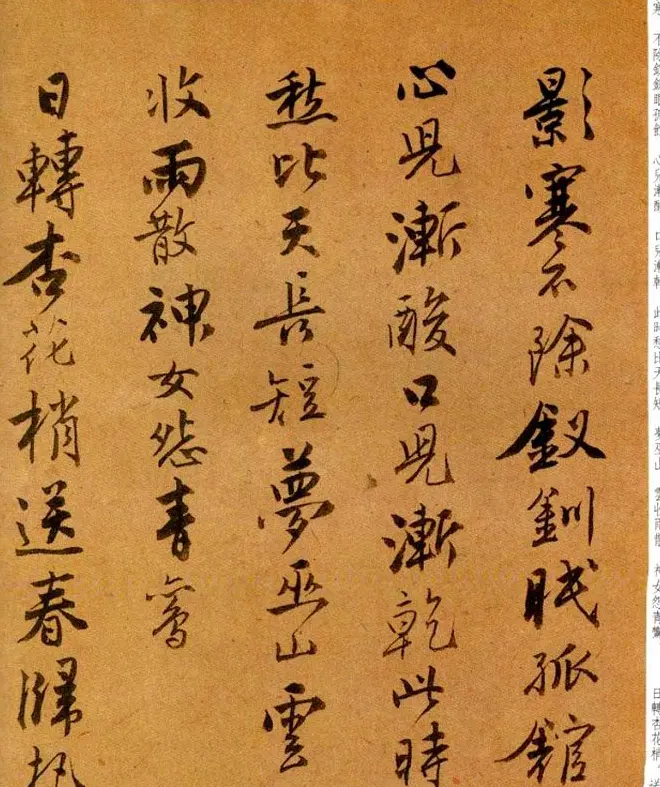 寒 不除釵釧眠孤館 心兒漸酸 口兒漸乾 此時愁比天長短 夢巫山 雲收雨散 神女怨青鸞 日轉杏花梢，送
影寒不除釵釧眠孤館
心兒漸酸口兒漸乾此時
愁比天長短夢巫山雲
收雨散神女怨青鸞
日轉杏花梢送春歸